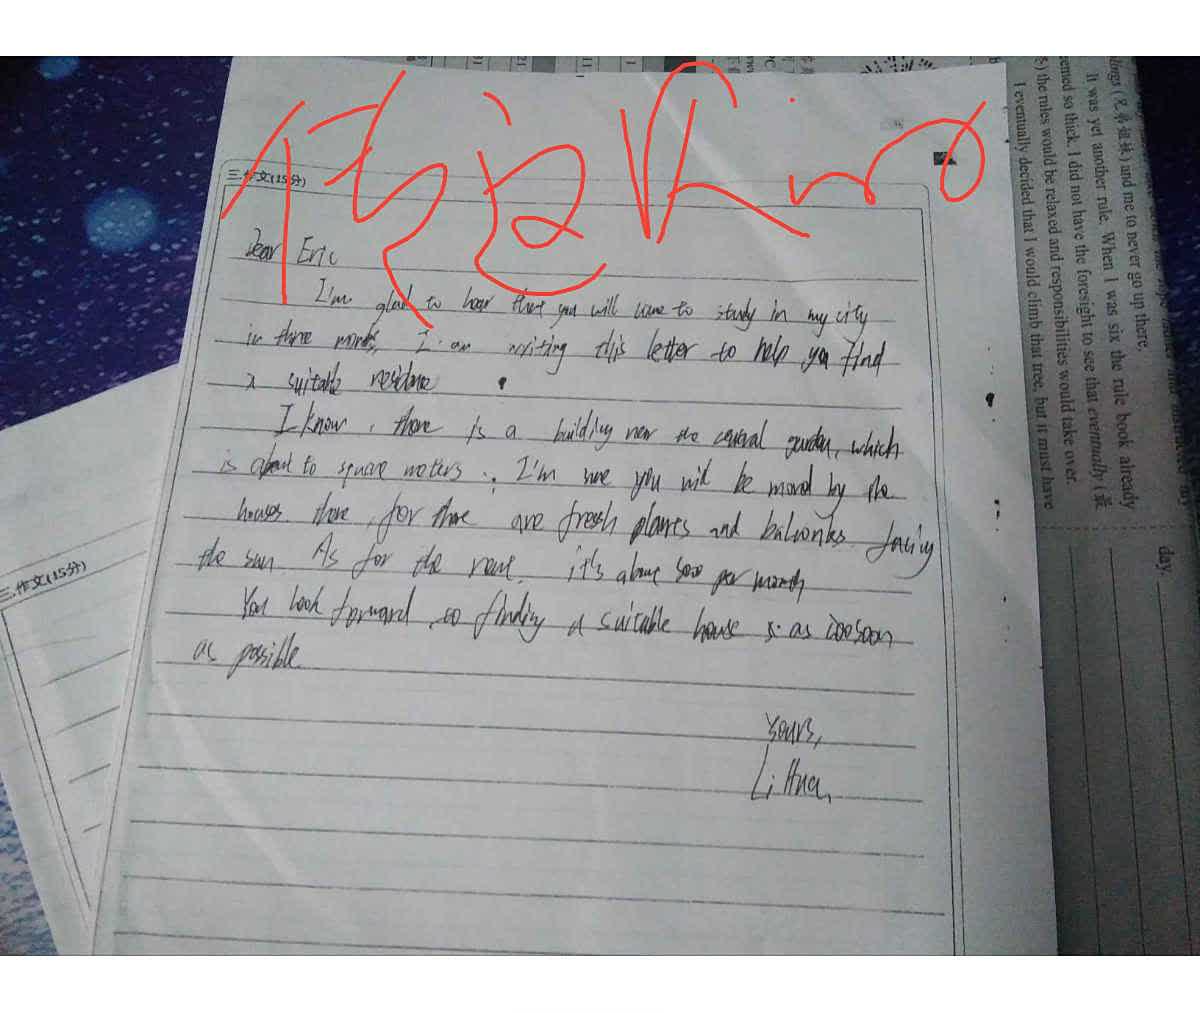 三.作文(15分)
Dear Eric
I'm glad to hear that you will come to study in my city
in three months, I am writing this letter to help you find
a suitable residence
I know, there is a building near the central garden, which
is about to square meters. I'm sure you will be moved by the
houses there, for there are fresh plants and balconies facing
the sun. As for the rent, it's about 500 per month
You look forward to finding a suitable house as soon
as possible
Yours,
Li Hua,
三.作文(15分)
(兄弟姐妹) and me to never go up there.
It was yet another rule. When I was six the rule book already
so thick. I did not have the foresight to see that eventually (最
the rules would be relaxed and responsibilities would take over.
I eventually decided that I would climb that tree, but it must have
day,